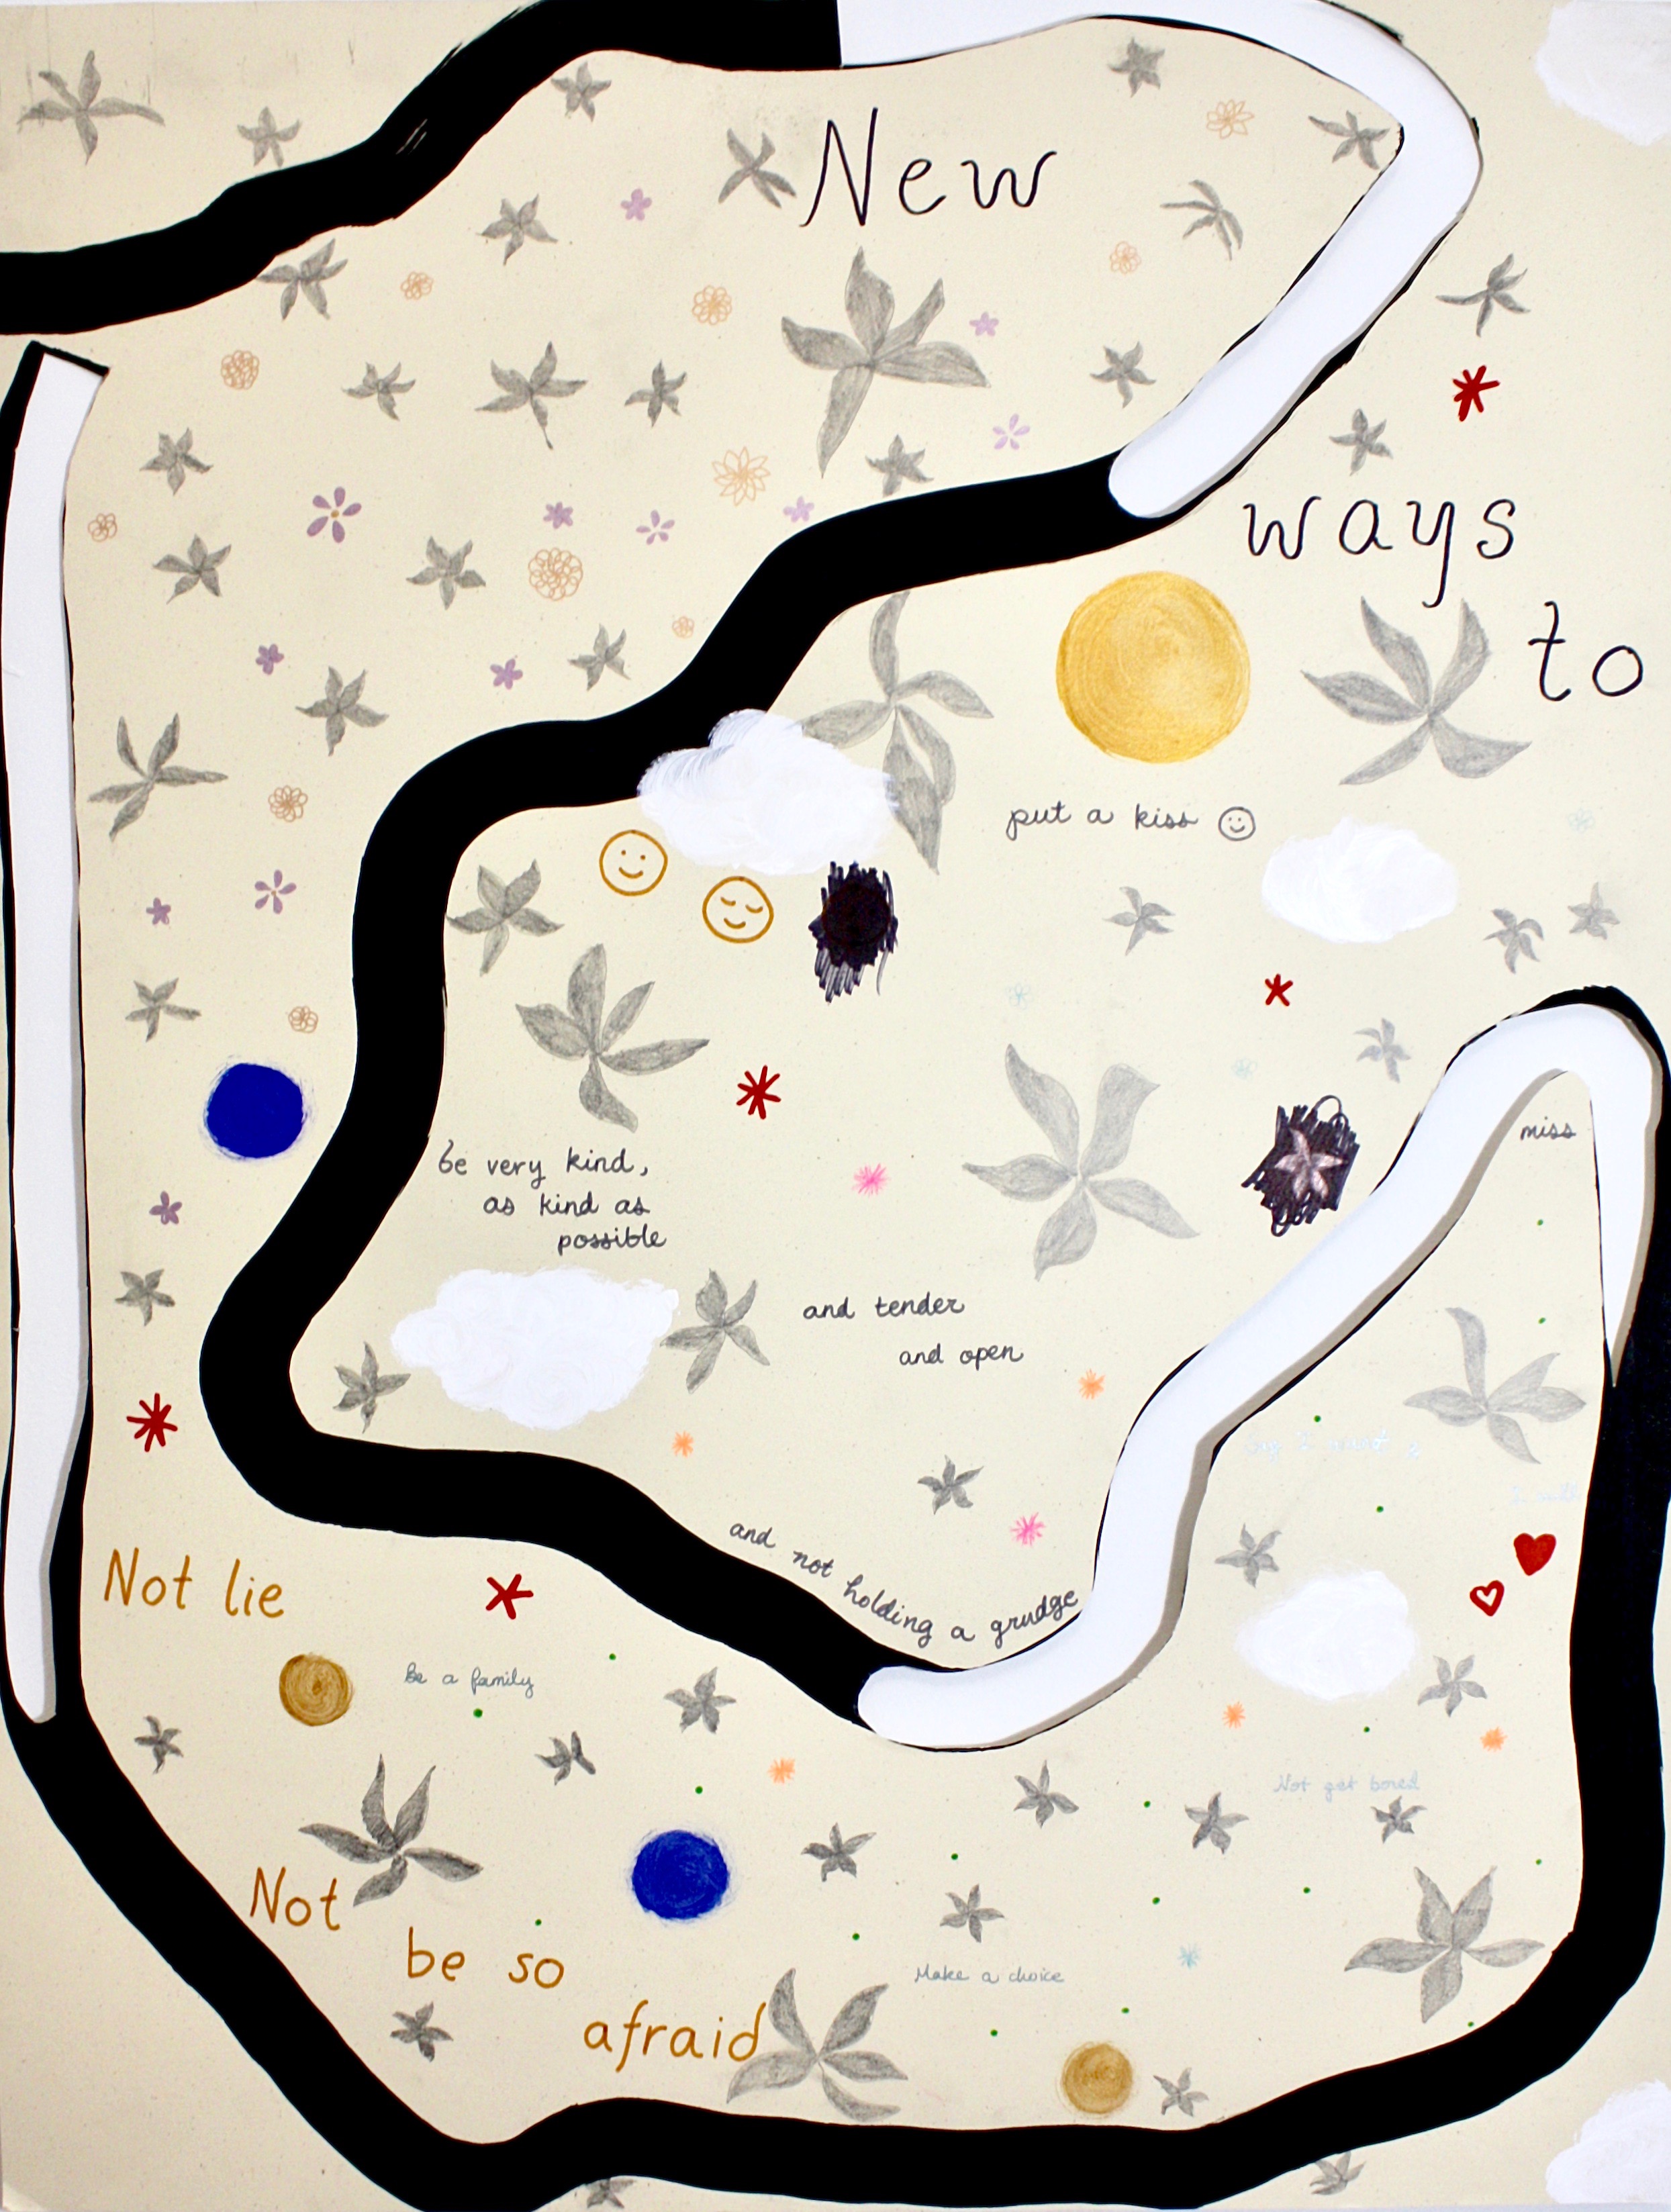 New
ways
to
put a kiss
be very kind,
as kind as
possible
miss
and tender
and open
and not holding a grudge
Not lie
Be a family
Not get bored
Not
be so
afraid
Make a choice